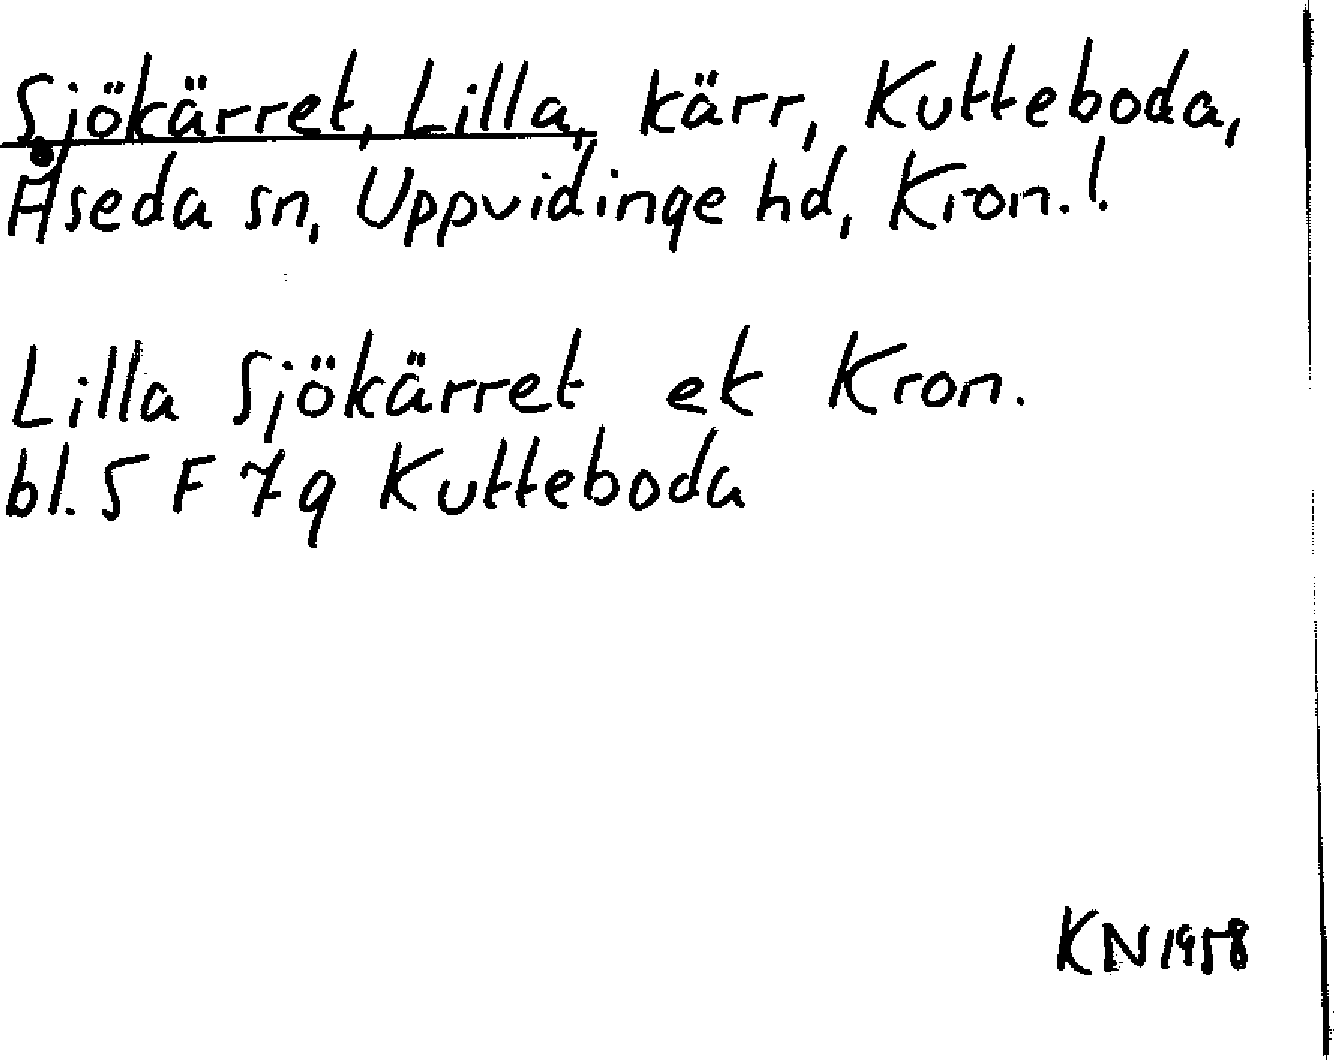 Sjökärret, Lilla, kärr, Kutteboda,
Åseda sn, Uppvidinge hd, Kron.!
Lilla Sjökärret ek Kron.
bl. 5 F 7g Kutteboda
KN 1958